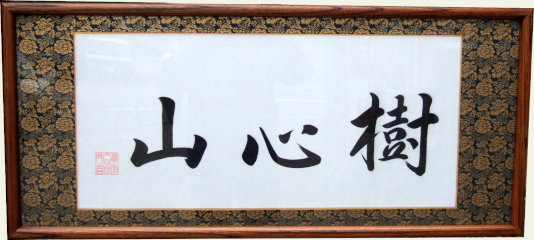 樹心山